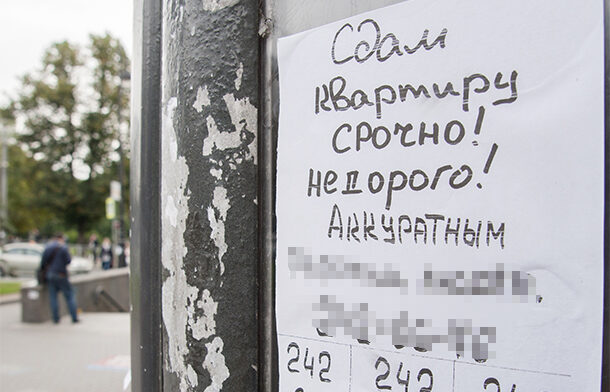 Сдам
квартиру
срочно!
недорого!
Аккуратным
242
242